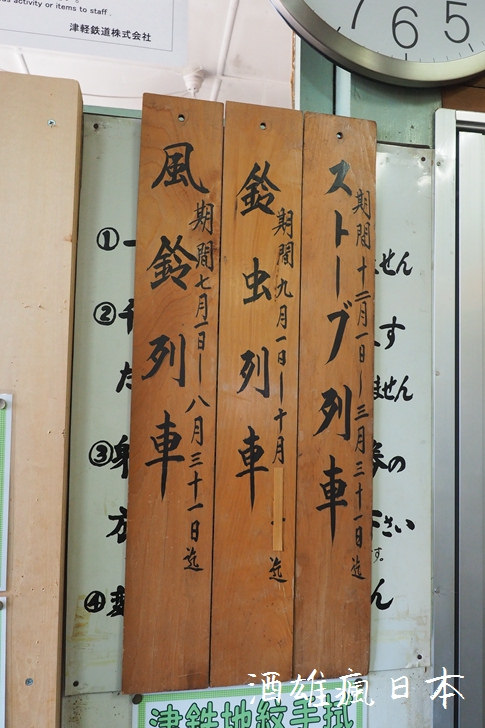 us activity or items to staff.
津軽鉄道株式会社
7 6 5
ストーブ列車
期間十二月一日ー三月三十一日迄
鈴虫列車
期間九月一日ー十月
迄
風鈴列車
期間七月一日ー八月三十一日迄
①
②
③
④
ません
す
ません
の
さい
す。
ん
津鉄地紋手拭
酒雄瘋日本